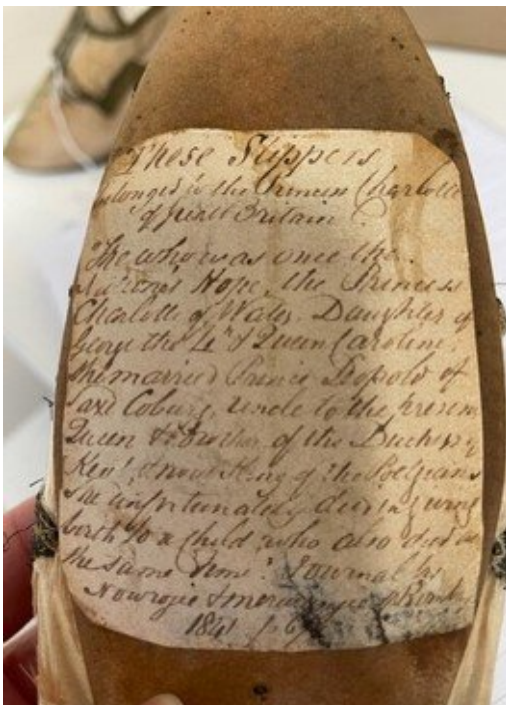 These Slippers
belonged to the Princess Charlotte
of great Britain.
"She who was once the
Nation's Hope, the Princess
Charlotte of Wales, Daughter of
George the 4th & Queen Caroline
She married Prince Leopold of
Saxe Coburg, uncle to the present
Queen & brother of the Duchess of
Kent, & now King of the Belgians
She unfortunately died in giving
birth to a child, who also died at
the same time". Journal by
Nowrojee & Merwanjee of Bombay
1841